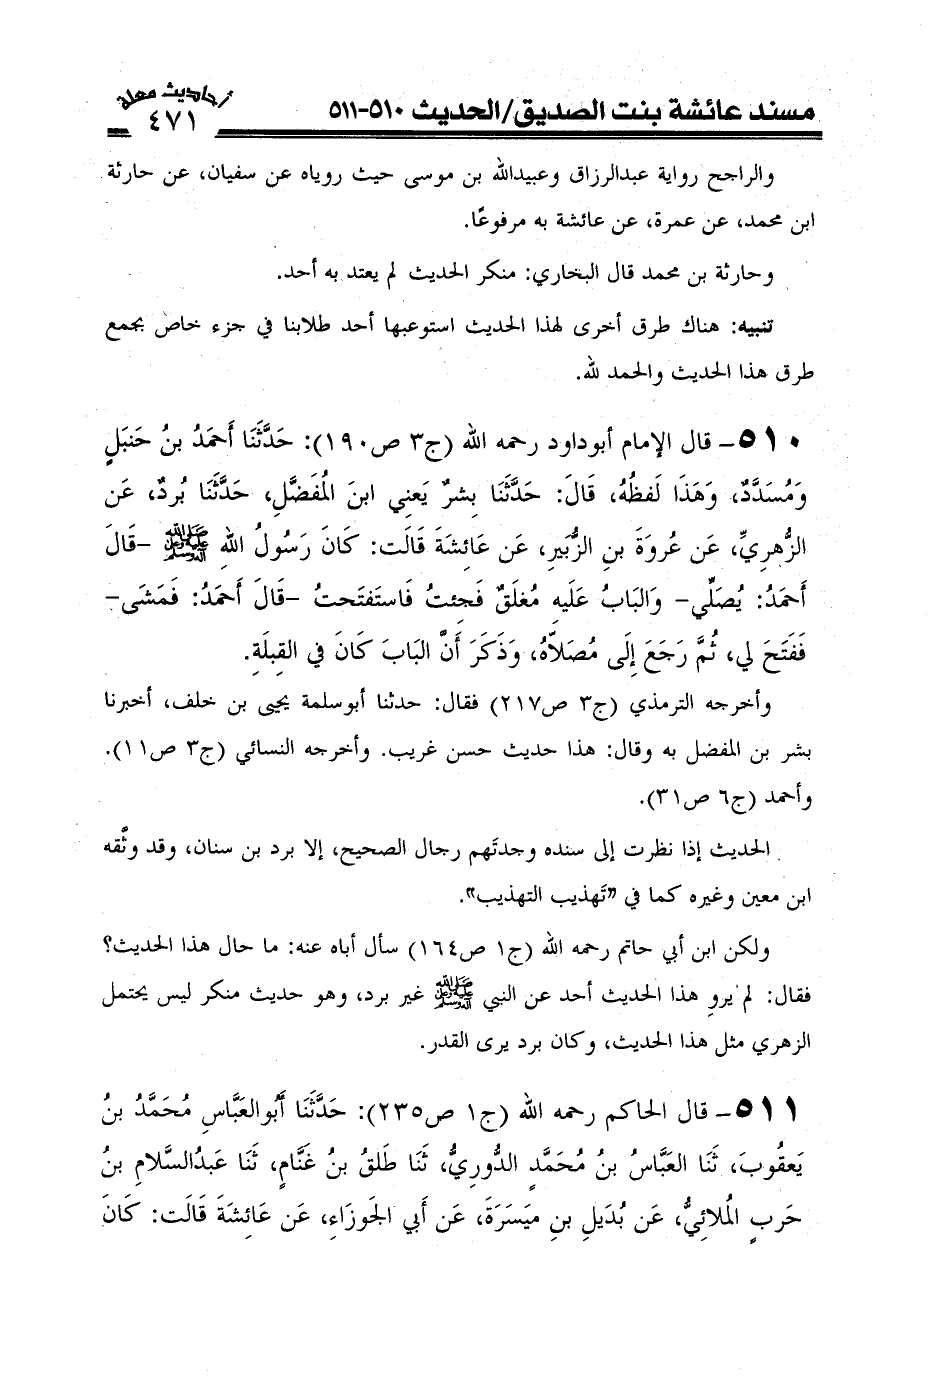 مسند عائشة بنت الصديق/الحديث ٥١٠-٥١١
أحاديث معلة
٤٧١
والراجح رواية عبدالرزاق وعبيدالله بن موسى حيث روياه عن سفيان، عن حارثة
ابن محمد، عن عمرة، عن عائشة به مرفوعًا.
وحارثة بن محمد قال البخاري: منكر الحديث لم يعتد به أحد.
تنبيه: هناك طرق أخرى لهذا الحديث استوعبها أحد طلابنا في جزء خاص بجمع
طرق هذا الحديث والحمد لله.
٥١٠- قال الإمام أبوداود رحمه الله (ج٣ ص١٩٠): حَدَّثَنَا أَحمَدُ بنُ حَنبَلٍ
وَمُسَدَّدٌ، وَهَذَا لَفظُهُ، قَالَ: حَدَّثَنَا بِشرٌ يَعنِي ابنَ المُفَضَّلِ، حَدَّثَنَا بُردٌ، عَن
الزُّهرِيِّ، عَن عُروَةَ بنِ الزُّبَيرِ، عَن عَائِشَةَ قَالَت: كَانَ رَسُولُ اللهِ ﷺ -قَالَ
أَحمَدُ: يُصَلِّي- وَالبَابُ عَلَيهِ مُغلَقٌ فَجِئتُ فَاستَفتَحتُ -قَالَ أَحمَدُ: فَمَشَى-
فَفَتَحَ لِي، ثُمَّ رَجَعَ إِلَى مُصَلاَّهُ، وَذَكَرَ أَنَّ البَابَ كَانَ فِي القِبلَةِ.
وأخرجه الترمذي (ج٣ ص٢١٧) فقال: حدثنا أبوسلمة يحيى بن خلف، أخبرنا
بشر بن المفضل به وقال: هذا حديث حسن غريب. وأخرجه النسائي (ج٣ ص١١).
وأحمد (ج٦ ص٣١).
الحديث إذا نظرت إلى سنده وجدتَهم رجال الصحيح، إلا برد بن سنان، وقد وثَّقه
ابن معين وغيره كما في «تَهذيب التهذيب».
ولكن ابن أبي حاتم رحمه الله (ج١ ص١٦٤) سأل أباه عنه: ما حال هذا الحديث؟
فقال: لم يروِ هذا الحديث أحد عن النبي ﷺ غير برد، وهو حديث منكر ليس يحتمل
الزهري مثل هذا الحديث، وكان برد يرى القدر.
٥١١- قال الحاكم رحمه الله (ج١ ص٢٣٥): حَدَّثَنَا أَبُوالعَبَّاسِ مُحَمَّدُ بنُ
يَعقُوبَ، ثَنَا العَبَّاسُ بنُ مُحَمَّدٍ الدُّورِيُّ، ثَنَا طَلقُ بنُ غَنَّامٍ، ثَنَا عَبدُالسَّلامِ بنُ
حَربٍ المُلائِيُّ، عَن بُدَيلِ بنِ مَيسَرَةَ، عَن أَبِي الجَوزَاءِ، عَن عَائِشَةَ قَالَت: كَانَ